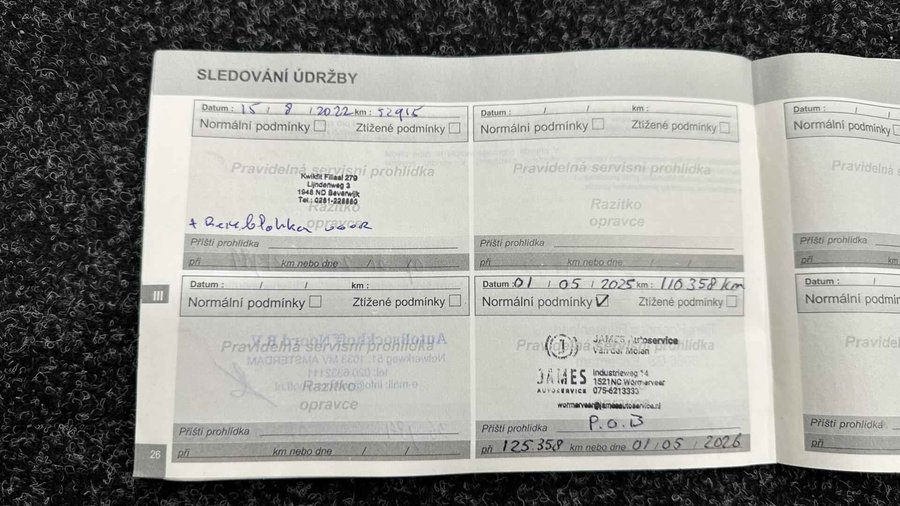 SLEDOVÁNÍ ÚDRŽBY
Datum : 15 / 8 / 2022 km : 52915
Normální podmínky Ztížené podmínky
Pravidelná servisní prohlídka
Kwikfit Filiaal 279
Lijndenweg 3
1948 ND Beverwijk
Tel.: 0251-228880
Razítko
opravce
Příští prohlídka
při km nebo dne / /
Datum : / / km :
Normální podmínky Ztížené podmínky
Pravidelná servisní prohlídka
Razítko
opravce
Příští prohlídka
při km nebo dne / /
III
Datum : / / km :
Normální podmínky Ztížené podmínky
Pravidelná servisní prohlídka
Razítko
opravce
Příští prohlídka
při km nebo dne / /
Datum : 01 / 05 / 2025 km : 110358 km
Normální podmínky Ztížené podmínky
JAMES Autoservice
Van der Molen
JAMES
AUTOSERVICE
Industrieweg 14
1521NC Wormerveer
075-6213333
wormerveer@jamesautoservice.nl
P.O.B
Příští prohlídka
při 125.358 km nebo dne 01 / 05 / 2026
26
Datum :
Normální podmín
Pravide
Příští prohlídka
při
Datum :
Normální podmín
Pravide
Příští prohlídka
při